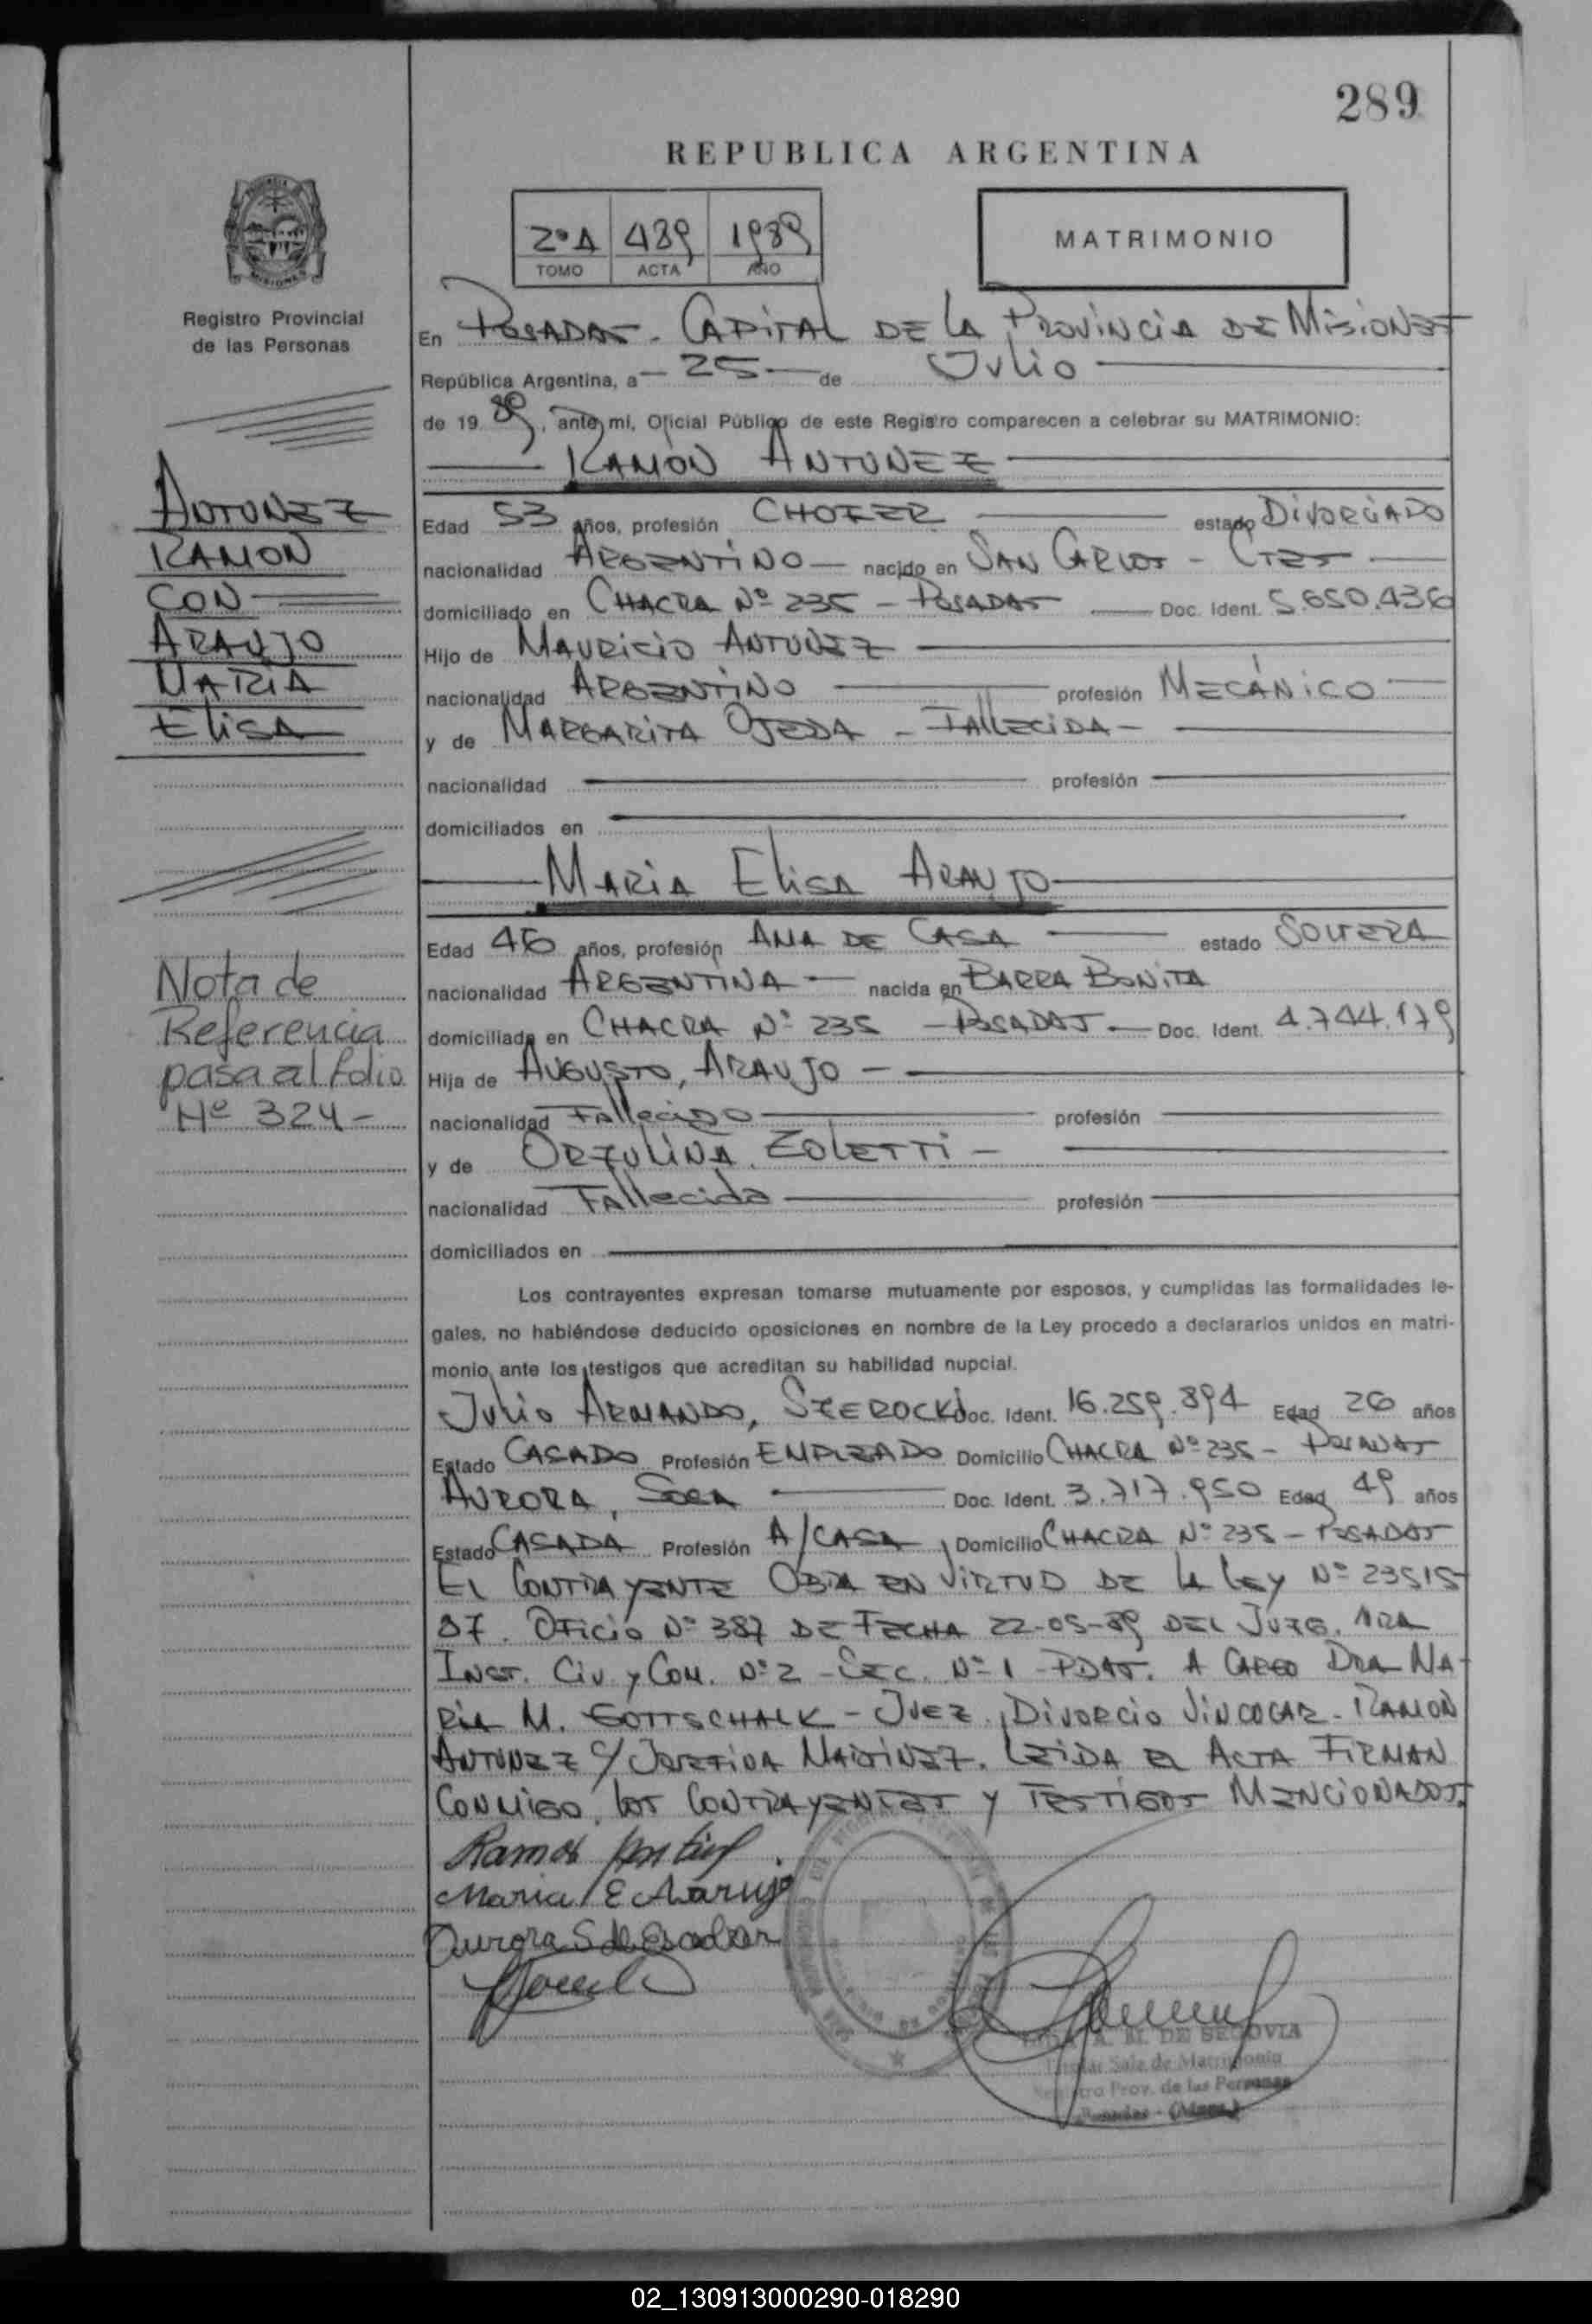 289
REPUBLICA ARGENTINA
2º A 489 1989
TOMO ACTA AÑO
MATRIMONIO
Registro Provincial
de las Personas
En POSADAS - CAPITAL DE LA PROVINCIA DE MISIONES
República Argentina, a - 25 - de JULIO
de 19 89, ante mi, Oficial Público de este Registro comparecen a celebrar su MATRIMONIO:
RAMON ANTUNEZ
ANTUNEZ
RAMON
CON
ARAUJO
MARIA
ELISA
Edad 53 años, profesión CHOFER estado DIVORCIADO
nacionalidad ARGENTINO nacido en SAN CARLOS - CTES
domiciliado en CHACRA Nº 235 - POSADAS Doc. Ident. 5.650.436
Hijo de MAURICIO ANTUNEZ
nacionalidad ARGENTINO profesión MECÁNICO
y de MARGARITA OJEDA - FALLECIDA -
nacionalidad profesión
domiciliados en
MARIA ELISA ARAUJO
Nota de
Referencia
pasa al folio
Nº 324 -
Edad 46 años, profesión AMA DE CASA estado SOLTERA
nacionalidad ARGENTINA - nacida en BARRA BONITA
domiciliada en CHACRA Nº 235 - POSADAS - Doc. Ident. 4.744.179
Hija de AUGUSTO, ARAUJO -
nacionalidad FALLECIDO profesión
y de ORZULINA ZOLETTI -
nacionalidad Fallecida profesión
domiciliados en
Los contrayentes expresan tomarse mutuamente por esposos, y cumplidas las formalidades le-
gales, no habiéndose deducido oposiciones en nombre de la Ley procedo a declararlos unidos en matri-
monio ante los testigos que acreditan su habilidad nupcial.
JULIO ARMANDO, SZEROCKI Doc. Ident. 16.259.894 Edad 26 años
Estado CASADO Profesión EMPLEADO Domicilio CHACRA Nº 235 - POSADAS
AURORA, SOSA Doc. Ident. 3.717.950 Edad 49 años
Estado CASADA Profesión A/CASA Domicilio CHACRA Nº 235 - POSADAS
EL CONTRAYENTE OBRA EN VIRTUD DE LA LEY Nº 23515
87. OFICIO Nº 387 DE FECHA 22-05-89 DEL JUZG. 1RA
INST. CIV. y COM. Nº 2 - SEC. Nº 1 - PDAS. A CARGO DRA MA-
RIA M. GOTTSCHALK - JUEZ. DIVORCIO VINCULAR - RAMON
ANTUNEZ C/ JOSEFINA MARTINEZ. LEIDA EL ACTA FIRMAN
CONMIGO, LOS CONTRAYENTES Y TESTIGOS MENCIONADOS.
Maria E Araujo
Aurora S de Escobar
A. M. DE SEGOVIA
Titular Sala de Matrimonio
Registro Prov. de las Personas
Posadas - (Mnes.)
02_130913000290-018290